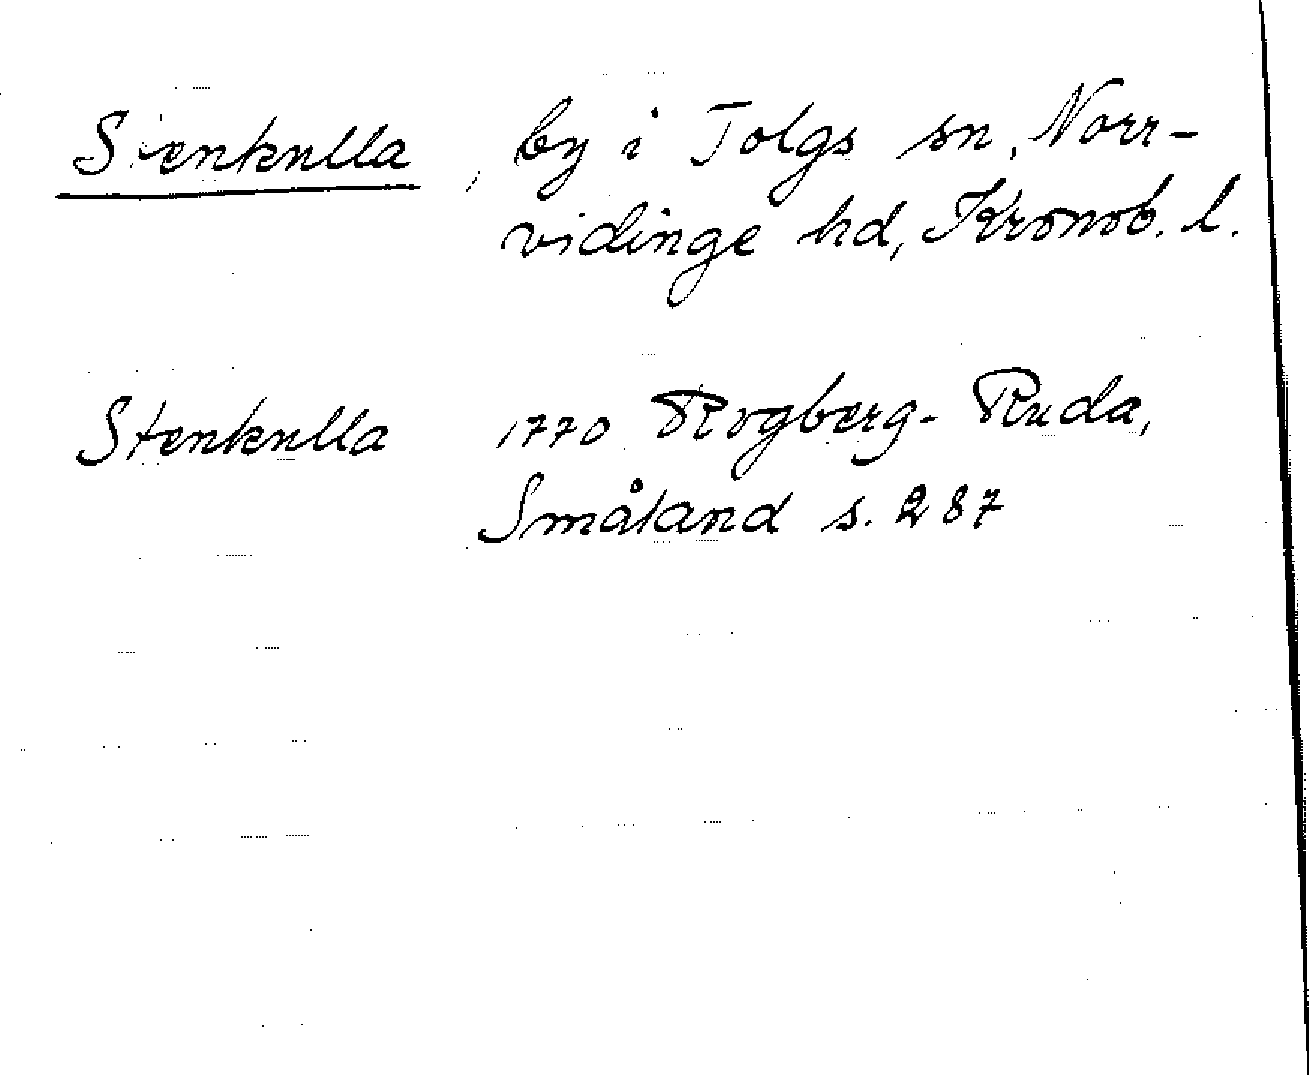 Stenkulla, by i Tolgs sn, Norr-
vidinge hd, Kronob. l.
Stenkulla 1770 Rogberg-Ruda,
Småland s. 287